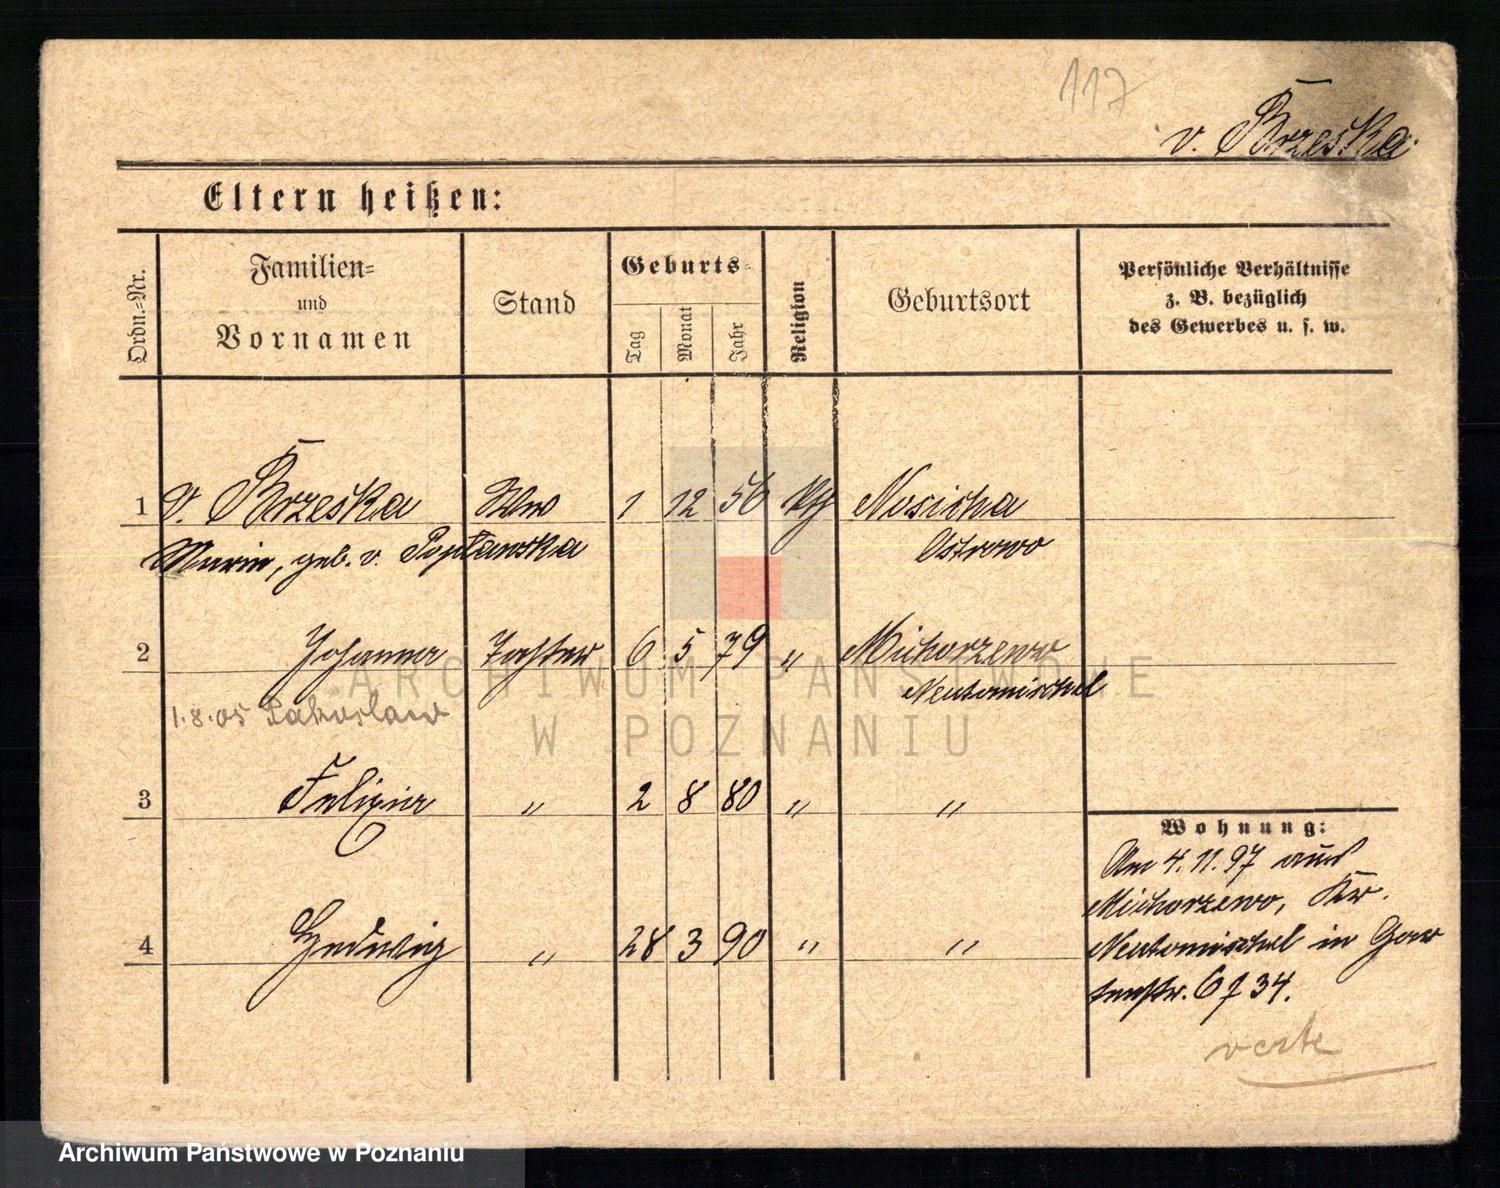 117
v. Brzeska
Eltern heißen:
Ordn.-Nr.
Familien-
und
Vornamen
Stand
Geburts-
Tag
Monat
Jahr
Religion
Geburtsort
Persönliche Verhältnisse
z. B. bezüglich
des Gewerbes u. s. w.
1 v. Brzeska Wwe 1 12 56 kth Nosicha
Marie, geb. v. Poplawska Ostrowo
2 Johanna Tochter 6 5 79 " Michorzewo
Neutomischel
1.8.05 Lakoslaw
3 Felixia " 2 8 80 " "
4 Hedwig " 28 3 90 " "
Wohnung:
Am 4.11.97 aus
Michorzewo, Kr.
Neutomischel in Gar
tenstr. 6 f 34.
verte
ARCHIWUM PAŃSTWOWE
W POZNANIU
Archiwum Państwowe w Poznaniu